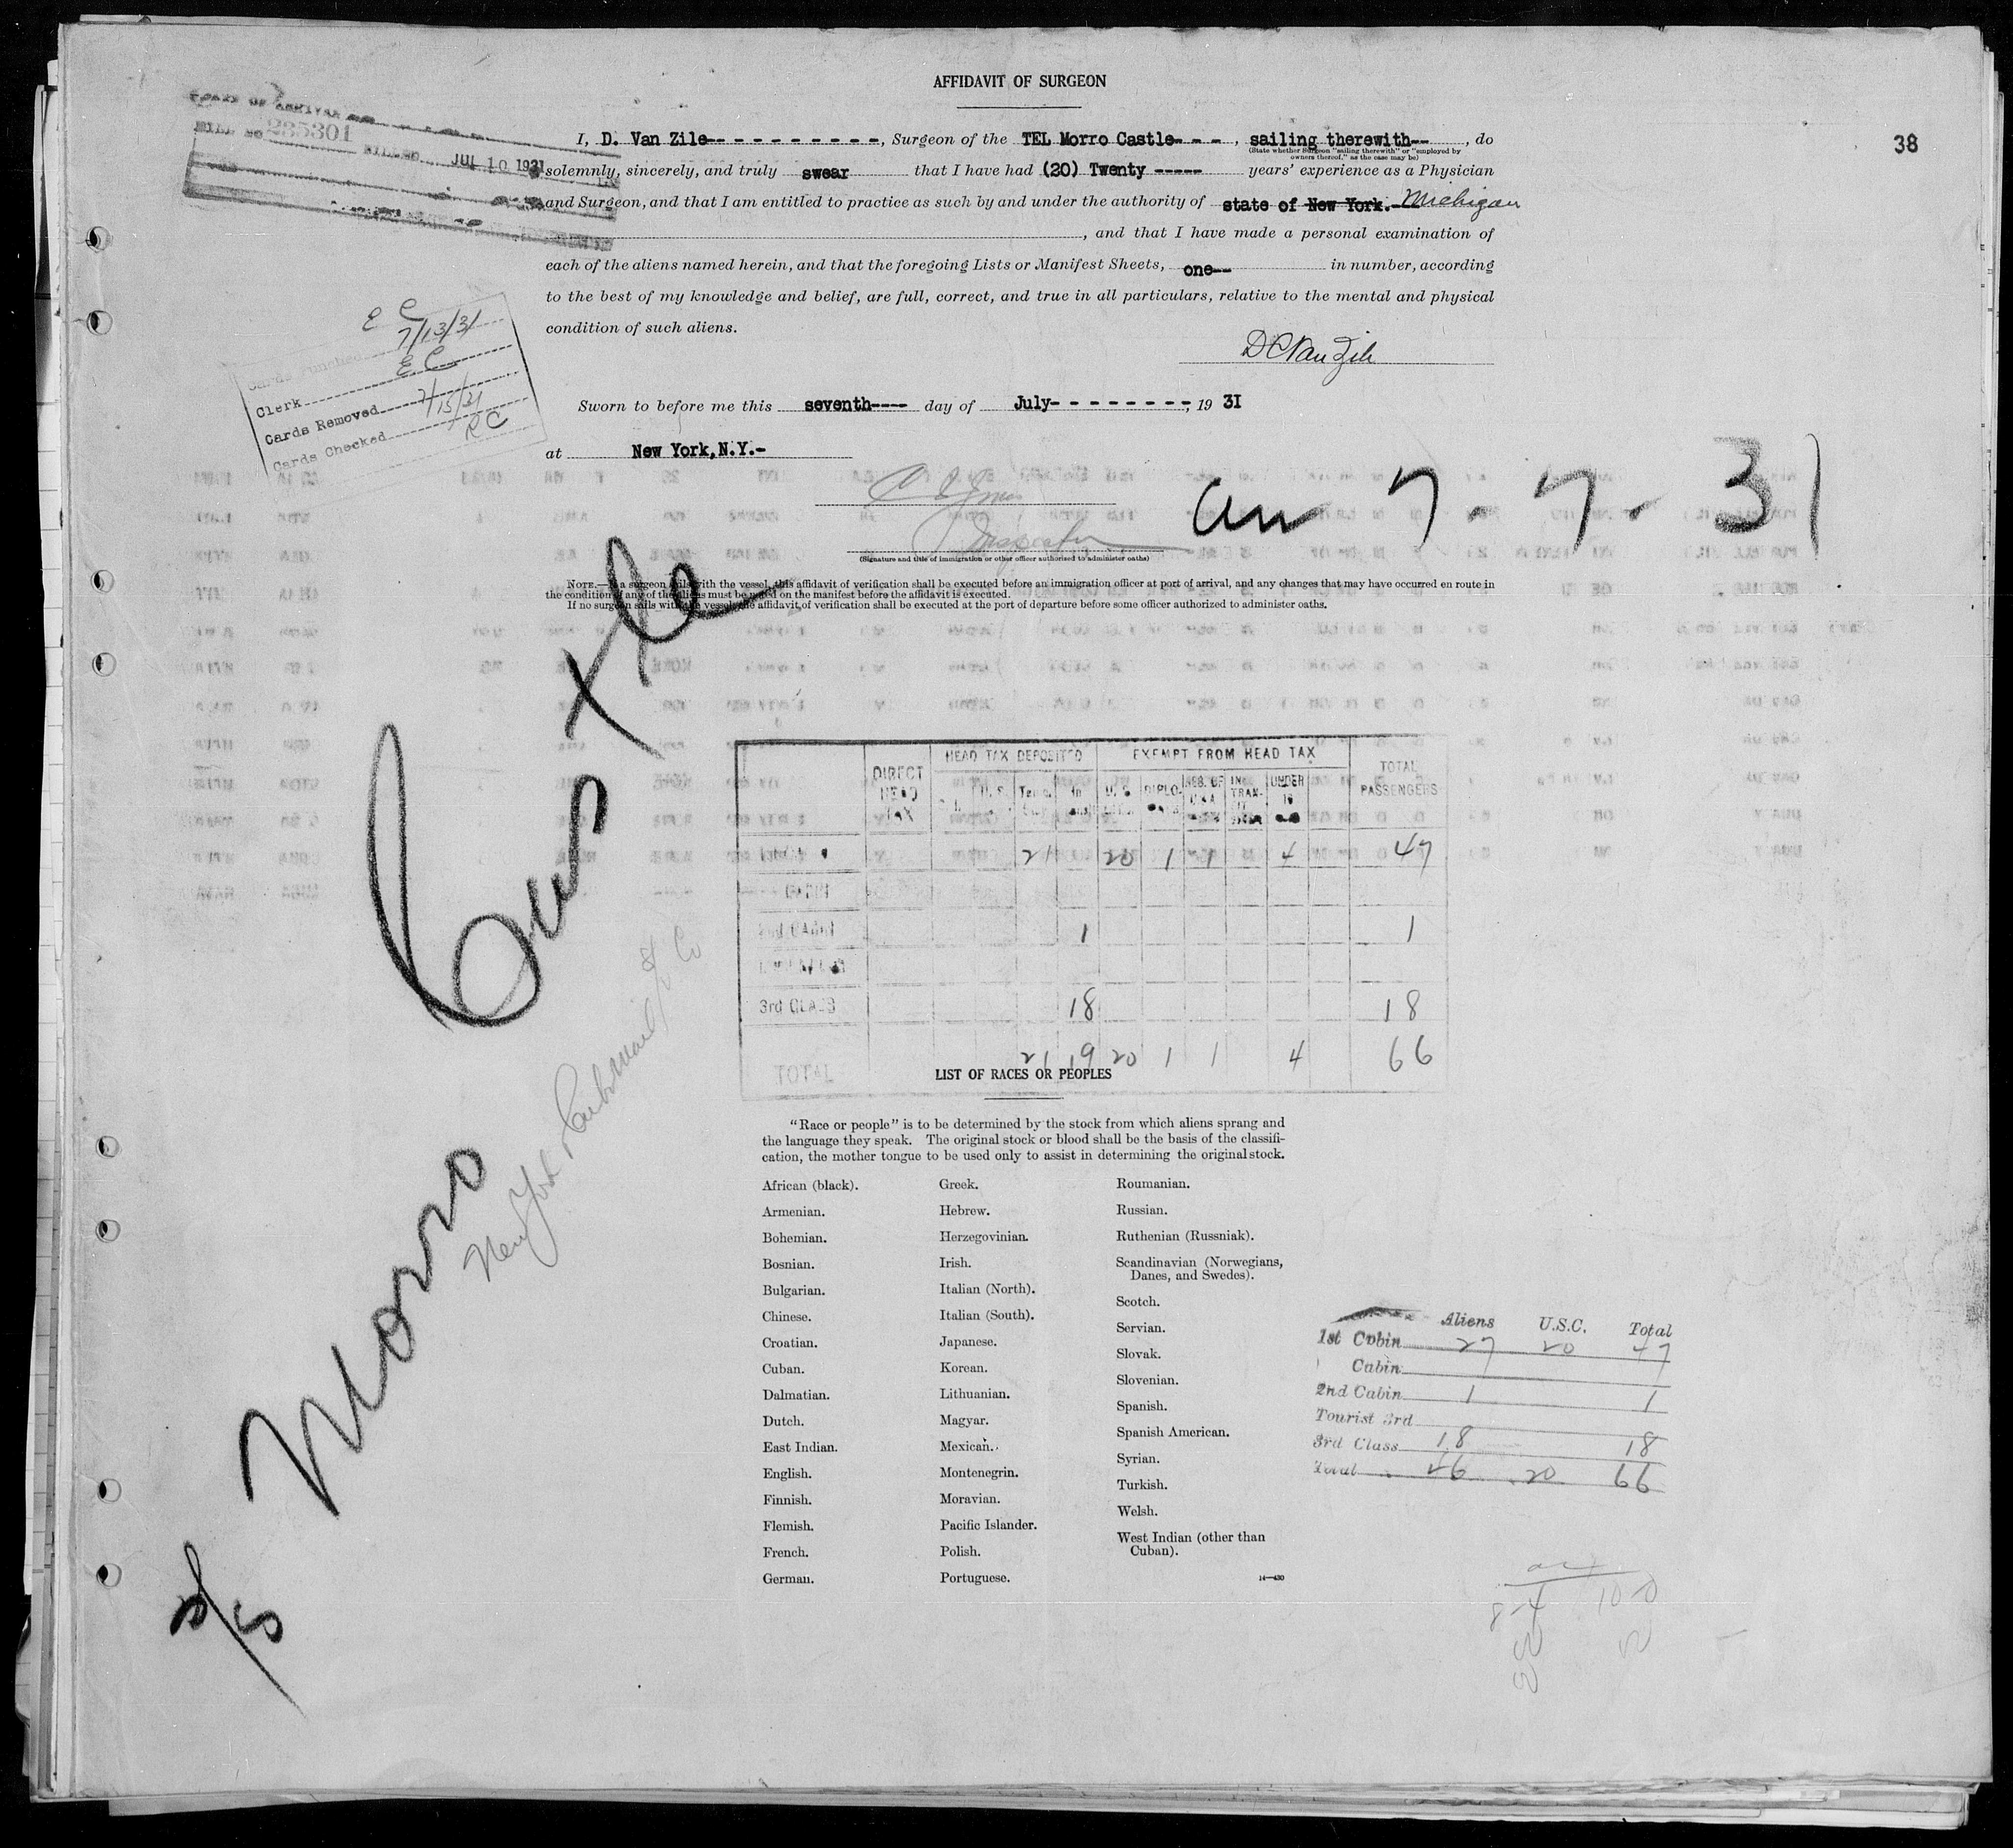 AFFIDAVIT OF SURGEON
38
285301
JUL 10 1931
I, D. Van Zile- - - - - - - - - - -, Surgeon of the TEL Morro Castle- - - , sailing therewith-- , do
(State whether Surgeon "sailing therewith" or "employed by
owners thereof," as the case may be)
solemnly, sincerely, and truly swear that I have had (20) Twenty ----- years' experience as a Physician
and Surgeon, and that I am entitled to practice as such by and under the authority of state of New York.- Michigan
, and that I have made a personal examination of
each of the aliens named herein, and that the foregoing Lists or Manifest Sheets, one-- in number, according
to the best of my knowledge and belief, are full, correct, and true in all particulars, relative to the mental and physical
condition of such aliens.
D C Van Zile
E C
Cards Punched 7/13/31
Clerk E C
Cards Removed 7/15/31
Cards Checked R C
Sworn to before me this seventh---- day of July- - - - - - - - -, 19 31
at New York, N.Y.-
Inspector
(Signature and title of immigration or other officer authorized to administer oaths)
arr 7-7-31
NOTE.—If a surgeon sails with the vessel, this affidavit of verification shall be executed before an immigration officer at port of arrival, and any changes that may have occurred en route in
the condition of any of the aliens must be noted on the manifest before the affidavit is executed.
If no surgeon sails with the vessel, the affidavit of verification shall be executed at the port of departure before some officer authorized to administer oaths.
S/S Morro Castle
New York & Cuba Mail SS Co
DIRECT HEAD TAX HEAD TAX DEPOSITED EXEMPT FROM HEAD TAX TOTAL PASSENGERS
21 20 1 1 4 47
CABIN
2nd CABIN 1 1
3rd CLASS 18 18
TOTAL 21 19 20 1 1 4 66
LIST OF RACES OR PEOPLES
"Race or people" is to be determined by the stock from which aliens sprang and
the language they speak. The original stock or blood shall be the basis of the classifi-
cation, the mother tongue to be used only to assist in determining the original stock.
African (black).
Armenian.
Bohemian.
Bosnian.
Bulgarian.
Chinese.
Croatian.
Cuban.
Dalmatian.
Dutch.
East Indian.
English.
Finnish.
Flemish.
French.
German.
Greek.
Hebrew.
Herzegovinian.
Irish.
Italian (North).
Italian (South).
Japanese.
Korean.
Lithuanian.
Magyar.
Mexican.
Montenegrin.
Moravian.
Pacific Islander.
Polish.
Portuguese.
Roumanian.
Russian.
Ruthenian (Russniak).
Scandinavian (Norwegians,
Danes, and Swedes).
Scotch.
Servian.
Slovak.
Slovenian.
Spanish.
Spanish American.
Syrian.
Turkish.
Welsh.
West Indian (other than
Cuban).
14—430
Aliens U.S.C. Total
1st Cabin 27 20 47
Cabin
2nd Cabin 1 1
Tourist 3rd
3rd Class 18 18
Total 46 20 66